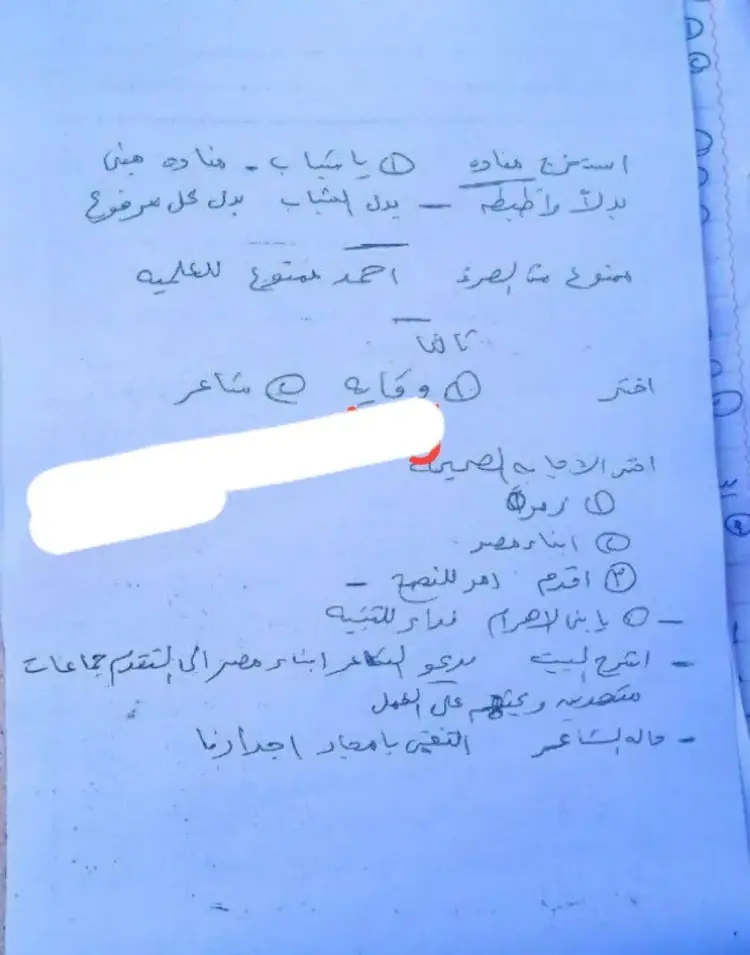 استخرج مناده ① يا شباب - مناده مبنى
بدلاً واظبطه - بدل الشباب بدل كل مرفوع
ممنوع من الصرف احمد ممنوع للعلميه
ثالثا
اختر ① وقايه ② مشاعر
اختر الاجابه الصحيحة
① زمراً
② ابناء مصر
③ اقدم امر للنصح -
- ⓪ يا بنى الاهرام نداء للتنبيه
- اشرح البيت يدعو الشاعر ابناء مصر الى التقدم جماعات
متحدين ويحثهم على العمل
- حاله الشاعر التغنى بامجاد اجدادنا